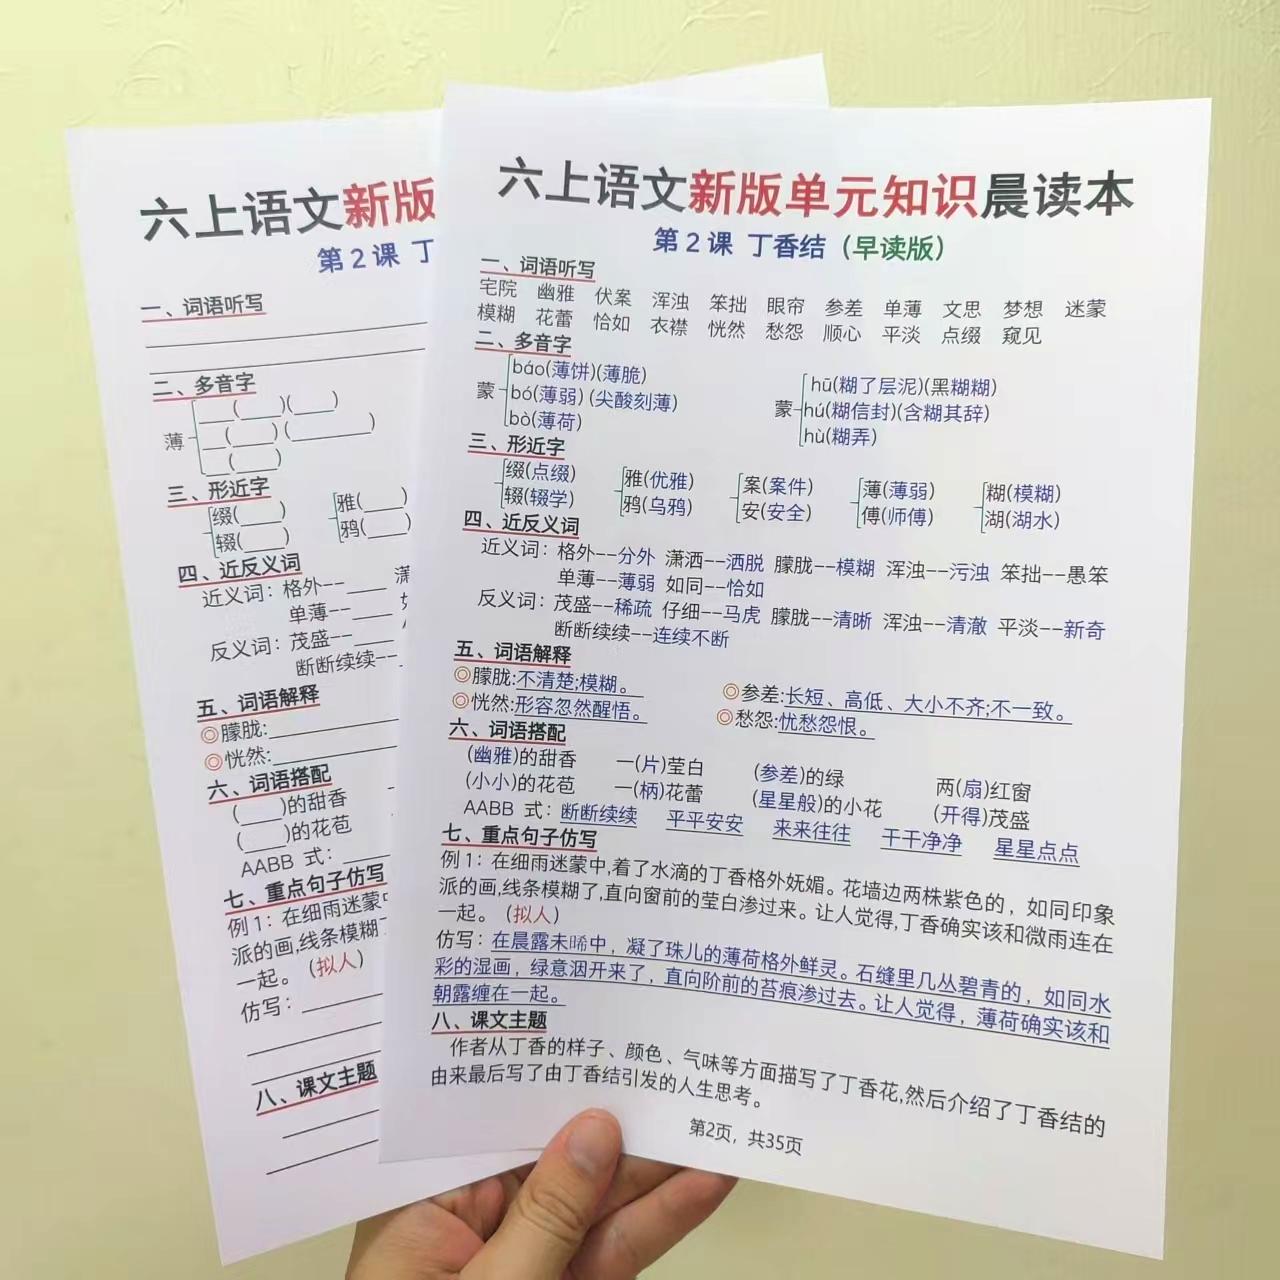 六上语文新版单元知识晨读本
第2课 丁香结（早读版）
一、词语听写
宅院 幽雅 伏案 浑浊 笨拙 眼帘 参差 单薄 文思 梦想 迷蒙
模糊 花蕾 恰如 衣襟 恍然 愁怨 顺心 平淡 点缀 窥见
二、多音字
蒙
báo(薄饼)(薄脆)
bó(薄弱) (尖酸刻薄)
bò(薄荷)
蒙
hū(糊了层泥)(黑糊糊)
hú(糊信封)(含糊其辞)
hù(糊弄)
三、形近字
缀(点缀) 雅(优雅) 案(案件) 薄(薄弱) 糊(模糊)
辍(辍学) 鸦(乌鸦) 安(安全) 傅(师傅) 湖(湖水)
四、近反义词
近义词：格外--分外 潇洒--洒脱 朦胧--模糊 浑浊--污浊 笨拙--愚笨
单薄--薄弱 如同--恰如
反义词：茂盛--稀疏 仔细--马虎 朦胧--清晰 浑浊--清澈 平淡--新奇
断断续续--连续不断
五、词语解释
◎朦胧:不清楚;模糊。 ◎参差:长短、高低、大小不齐;不一致。
◎恍然:形容忽然醒悟。 ◎愁怨:忧愁怨恨。
六、词语搭配
(幽雅)的甜香 一(片)莹白 (参差)的绿 两(扇)红窗
(小小)的花苞 一(柄)花蕾 (星星般)的小花 (开得)茂盛
AABB 式：断断续续 平平安安 来来往往 干干净净 星星点点
七、重点句子仿写
例1：在细雨迷蒙中,着了水滴的丁香格外妩媚。花墙边两株紫色的，如同印象
派的画,线条模糊了,直向窗前的莹白渗过来。让人觉得,丁香确实该和微雨连在
一起。（拟人）
仿写：在晨露未晞中，凝了珠儿的薄荷格外鲜灵。石缝里几丛碧青的，如同水
彩的湿画，绿意洇开来了，直向阶前的苔痕渗过去。让人觉得，薄荷确实该和
朝露缠在一起。
八、课文主题
作者从丁香的样子、颜色、气味等方面描写了丁香花,然后介绍了丁香结的
由来最后写了由丁香结引发的人生思考。
第2页，共35页
六上语文新版
第2课 丁
一、词语听写
二、多音字
薄
___(____)(____)
__(____) (________)
__(____)
三、形近字
缀(____) 雅(____)
辍(____) 鸦(____)
四、近反义词
近义词：格外--____
单薄--____
反义词：茂盛--____
断断续续--
五、词语解释
◎朦胧:
◎恍然:
六、词语搭配
(____)的甜香
(____)的花苞
AABB 式：
七、重点句子仿写
例1：在细雨迷蒙
派的画,线条模糊
一起。（拟人）
仿写：
八、课文主题